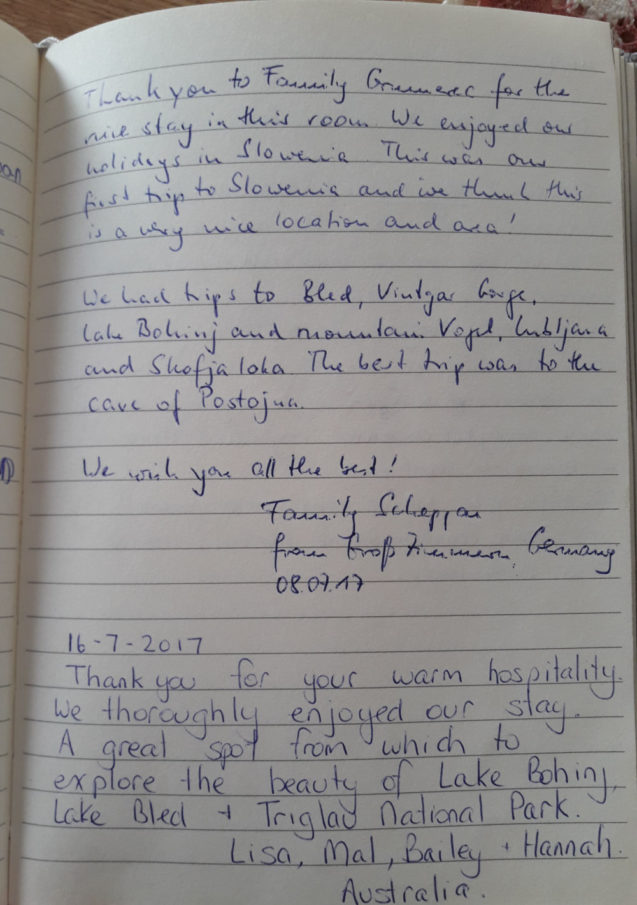 Thank you to Family for the
nice stay in this room We enjoyed our
holidays in Slowenia. This was our
first trip to Slowenia and we think this
is a very nice location and area!
We had trips to Bled, Vintgar Gorge,
lake Bohinj and mountain Vogel, Lubljana
and Skofja loka The best trip was to the
cave of Postojna.
We wish you all the best!
Family
from Groß Zimmern, Germany
08.07.17
16-7-2017
Thank you for your warm hospitality.
We thoroughly enjoyed our stay.
A great spot from which to
explore the beauty of Lake Bohinj,
Lake Bled + Triglav National Park.
Lisa, Mal, Bailey + Hannah.
Australia.